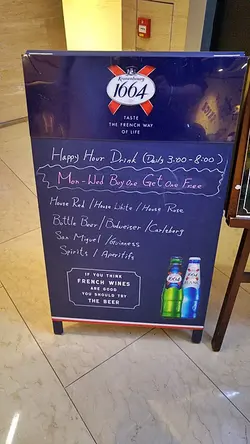 Kronenbourg
1664
TASTE
THE FRENCH WAY
OF LIFE
Happy Hour Drink (Daily 3:00-8:00)
Mon-Wed Buy One Get One Free
House Red / House White / House Rose
Bottle Beer / Budweiser / Carlsberg
San Miguel / Guinness
Spirits / Aperitifs
IF YOU THINK
FRENCH WINES
ARE GOOD
YOU SHOULD TRY
THE BEER